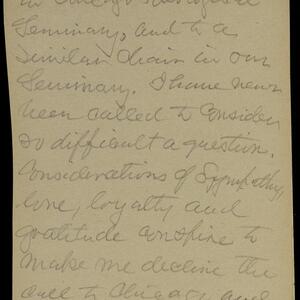 in Chicago Theological
Seminary, and to a
similar chair in our
Seminary. I have never
been called to consider
so difficult a question.
Considerations of Sympathy,
love, loyalty and
gratitude conspire to
make me decline the
call to Chicago, and